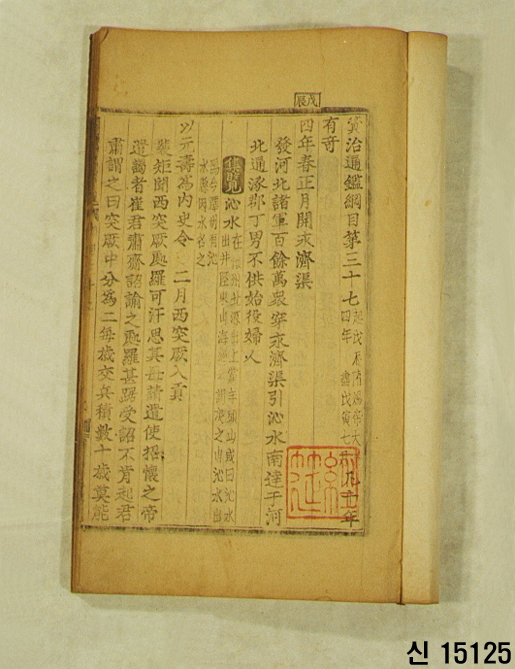 戊辰
資治通鑑綱目第三十七起戊辰隋煬帝大
四年盡戊寅七
有奇
四年春正月開永濟渠
發河北諸軍百餘萬衆穿永濟渠引沁水南達于河
北通涿郡丁男不供始役婦人
集覽 沁水
水出
以元壽爲内史令 二月西突厥入貢
裴矩聞西突厥處羅可汗思其母請遣使招懷之帝
遣謁者崔君肅齎詔諭之處羅甚踞受詔不肯起君
肅謂之曰突厥中分爲二每歲交兵積數十歲莫能
신 15125